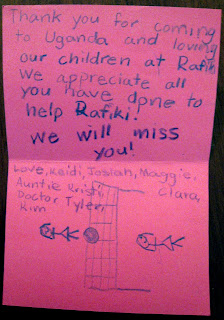 Thank you for coming
to Uganda and loving
our children at Rafiki
We appreciate all
you have done to
help Rafiki!
We will miss
you!
Love, Heidi, Josiah, Maggie,
Auntie Kristi, Clara,
Doctor, Tyler,
Kim